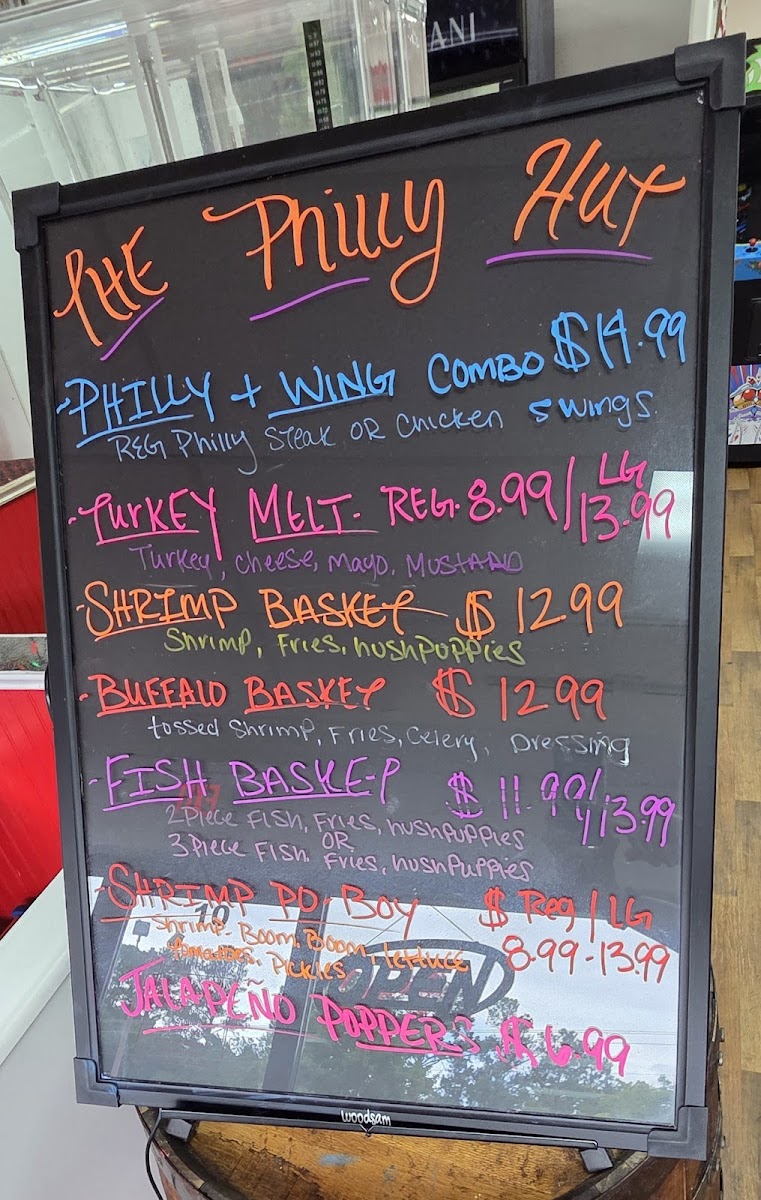 ANI
THE Philly HUT
-PHILLY + WING COMBO $14.99
REG Philly Steak OR Chicken 5 wings
-TURKEY MELT- REG. 8.99/ LG 13.99
Turkey, Cheese, Mayo, MUSTARD
-SHRIMP BASKET $ 12 99
Shrimp, Fries, hushpuppies
-BUFFALO BASKET $ 12 99
tossed Shrimp, Fries, Celery, Dressing
-FISH BASKET $ 11.99/13.99
2 Piece FISH, Fries, hushpuppies
OR
3 Piece FISH. Fries, hushpuppies
-SHRIMP PO-BOY $ Reg / LG
Shrimp. Boom. Boom, lettuce 8.99-13.99
tomatoes. Pickles
JALAPEÑO POPPERS $ 6.99
OPEN
woodsam